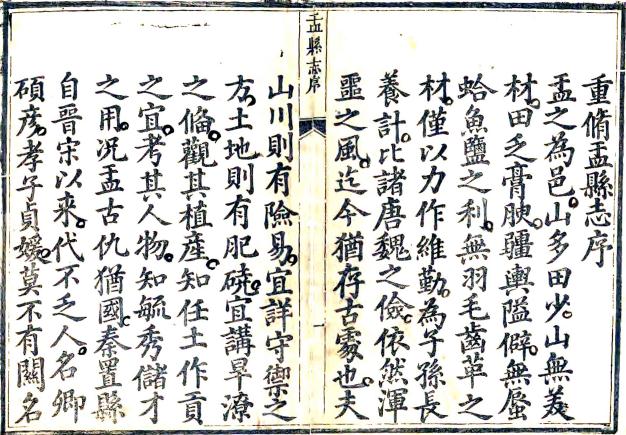 重脩盂縣志序
盂之為邑。山多田少。山無美
材。田乏膏腴。疆輿隘僻。無蜃
蛤魚鹽之利。無羽毛齒革之
材。僅以力作維勤。為子孫長
養計。比諸唐魏之儉。依然渾
噩之風。迄今猶存古處也。夫
盂縣志序
一
山川則有險易。宜詳守禦之
方。土地則有肥磽。宜講旱潦
之備。觀其植產。知任土作貢
之宜。考其人物。知毓秀儲才
之用。況盂古仇猶國。秦置縣
自晉宋以來。代不乏人。名卿
碩彥。孝子貞媛。莫不有關名